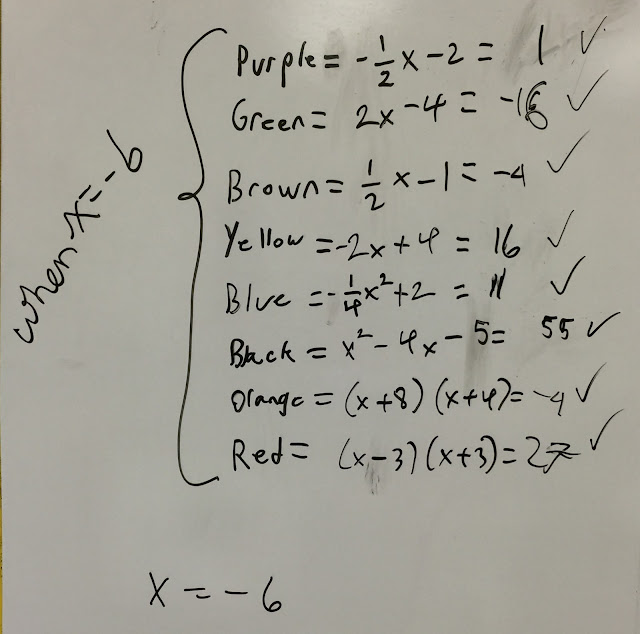 when x = -6
Purple = -1/2 x - 2 = 1 ✓
Green = 2x - 4 = -16 ✓
Brown = 1/2 x - 1 = -4 ✓
Yellow = -2x + 4 = 16 ✓
Blue = -1/4 x² + 2 = 11 ✓
Black = x² - 4x - 5 = 55 ✓
Orange = (x+8)(x+4) = -4 ✓
Red = (x-3)(x+3) = 27 ✓
x = -6